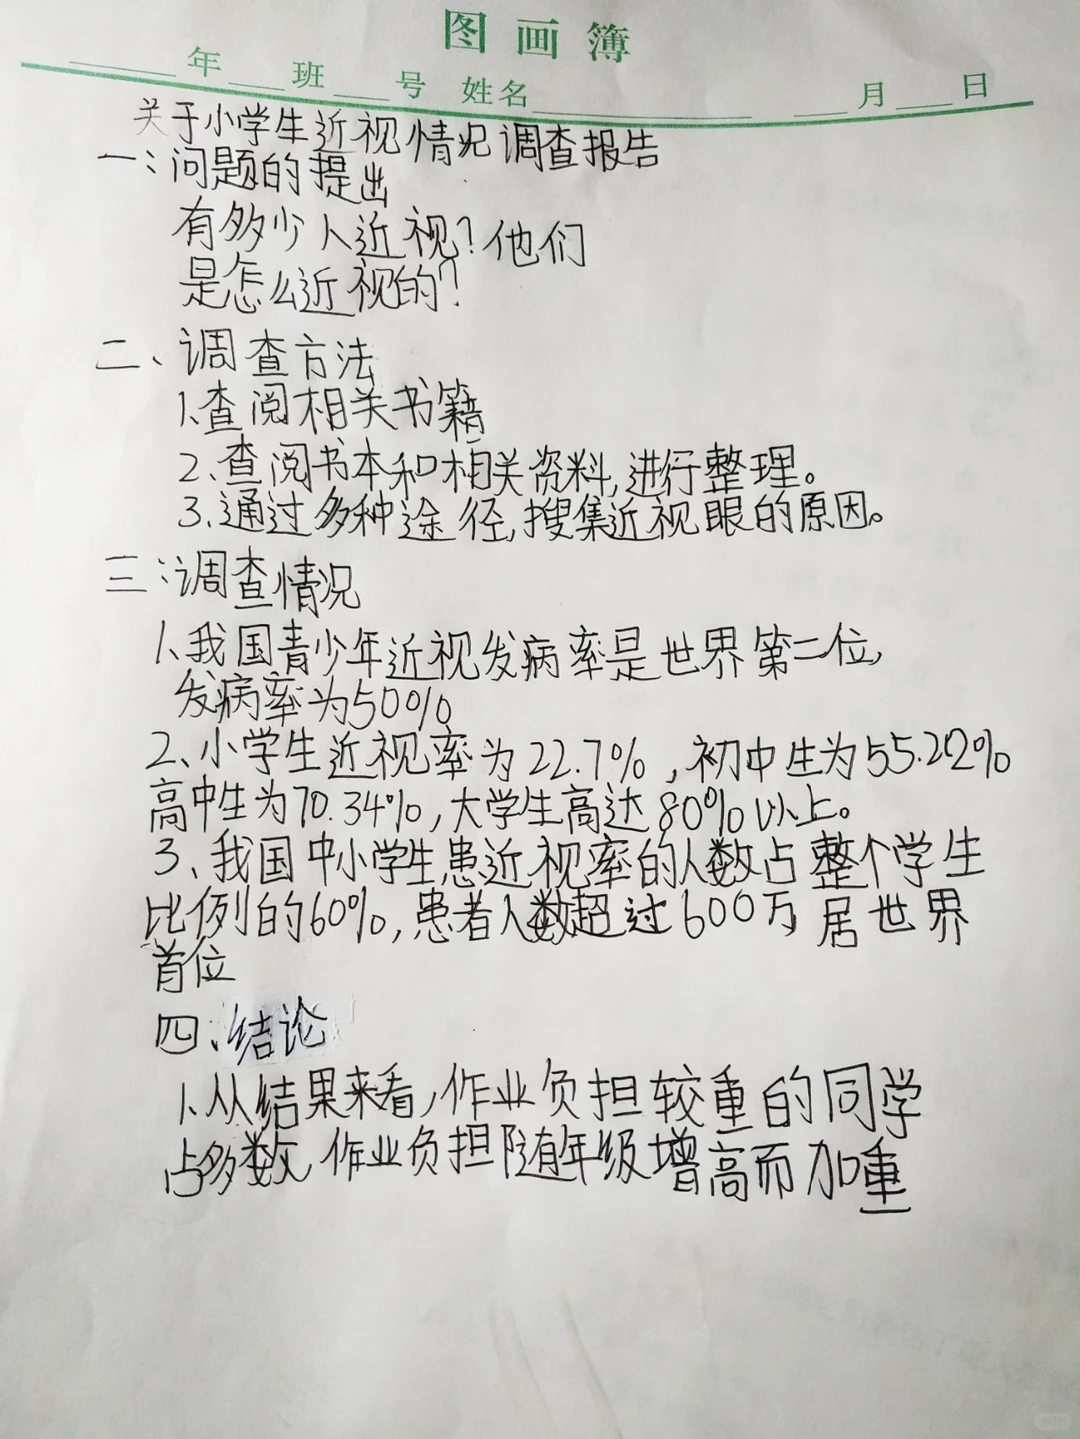 图画簿
年 班 号 姓名 月 日
关于小学生近视情况调查报告
一:问题的提出
有多少人近视?他们
是怎么近视的?
二、调查方法
1.查阅相关书籍
2.查阅书本和相关资料,进行整理。
3.通过多种途径,搜集近视眼的原因。
三:调查情况
1、我国青少年近视发病率是世界第二位,
发病率为50%
2、小学生近视率为22.7%,初中生为55.22%
高中生为70.34%,大学生高达80%以上。
3、我国中小学生患近视率的人数占整个学生
比例的60%,患者人数超过600万居世界
首位
四、结论
1.从结果来看,作业负担较重的同学
占多数,作业负担随年级增高而加重